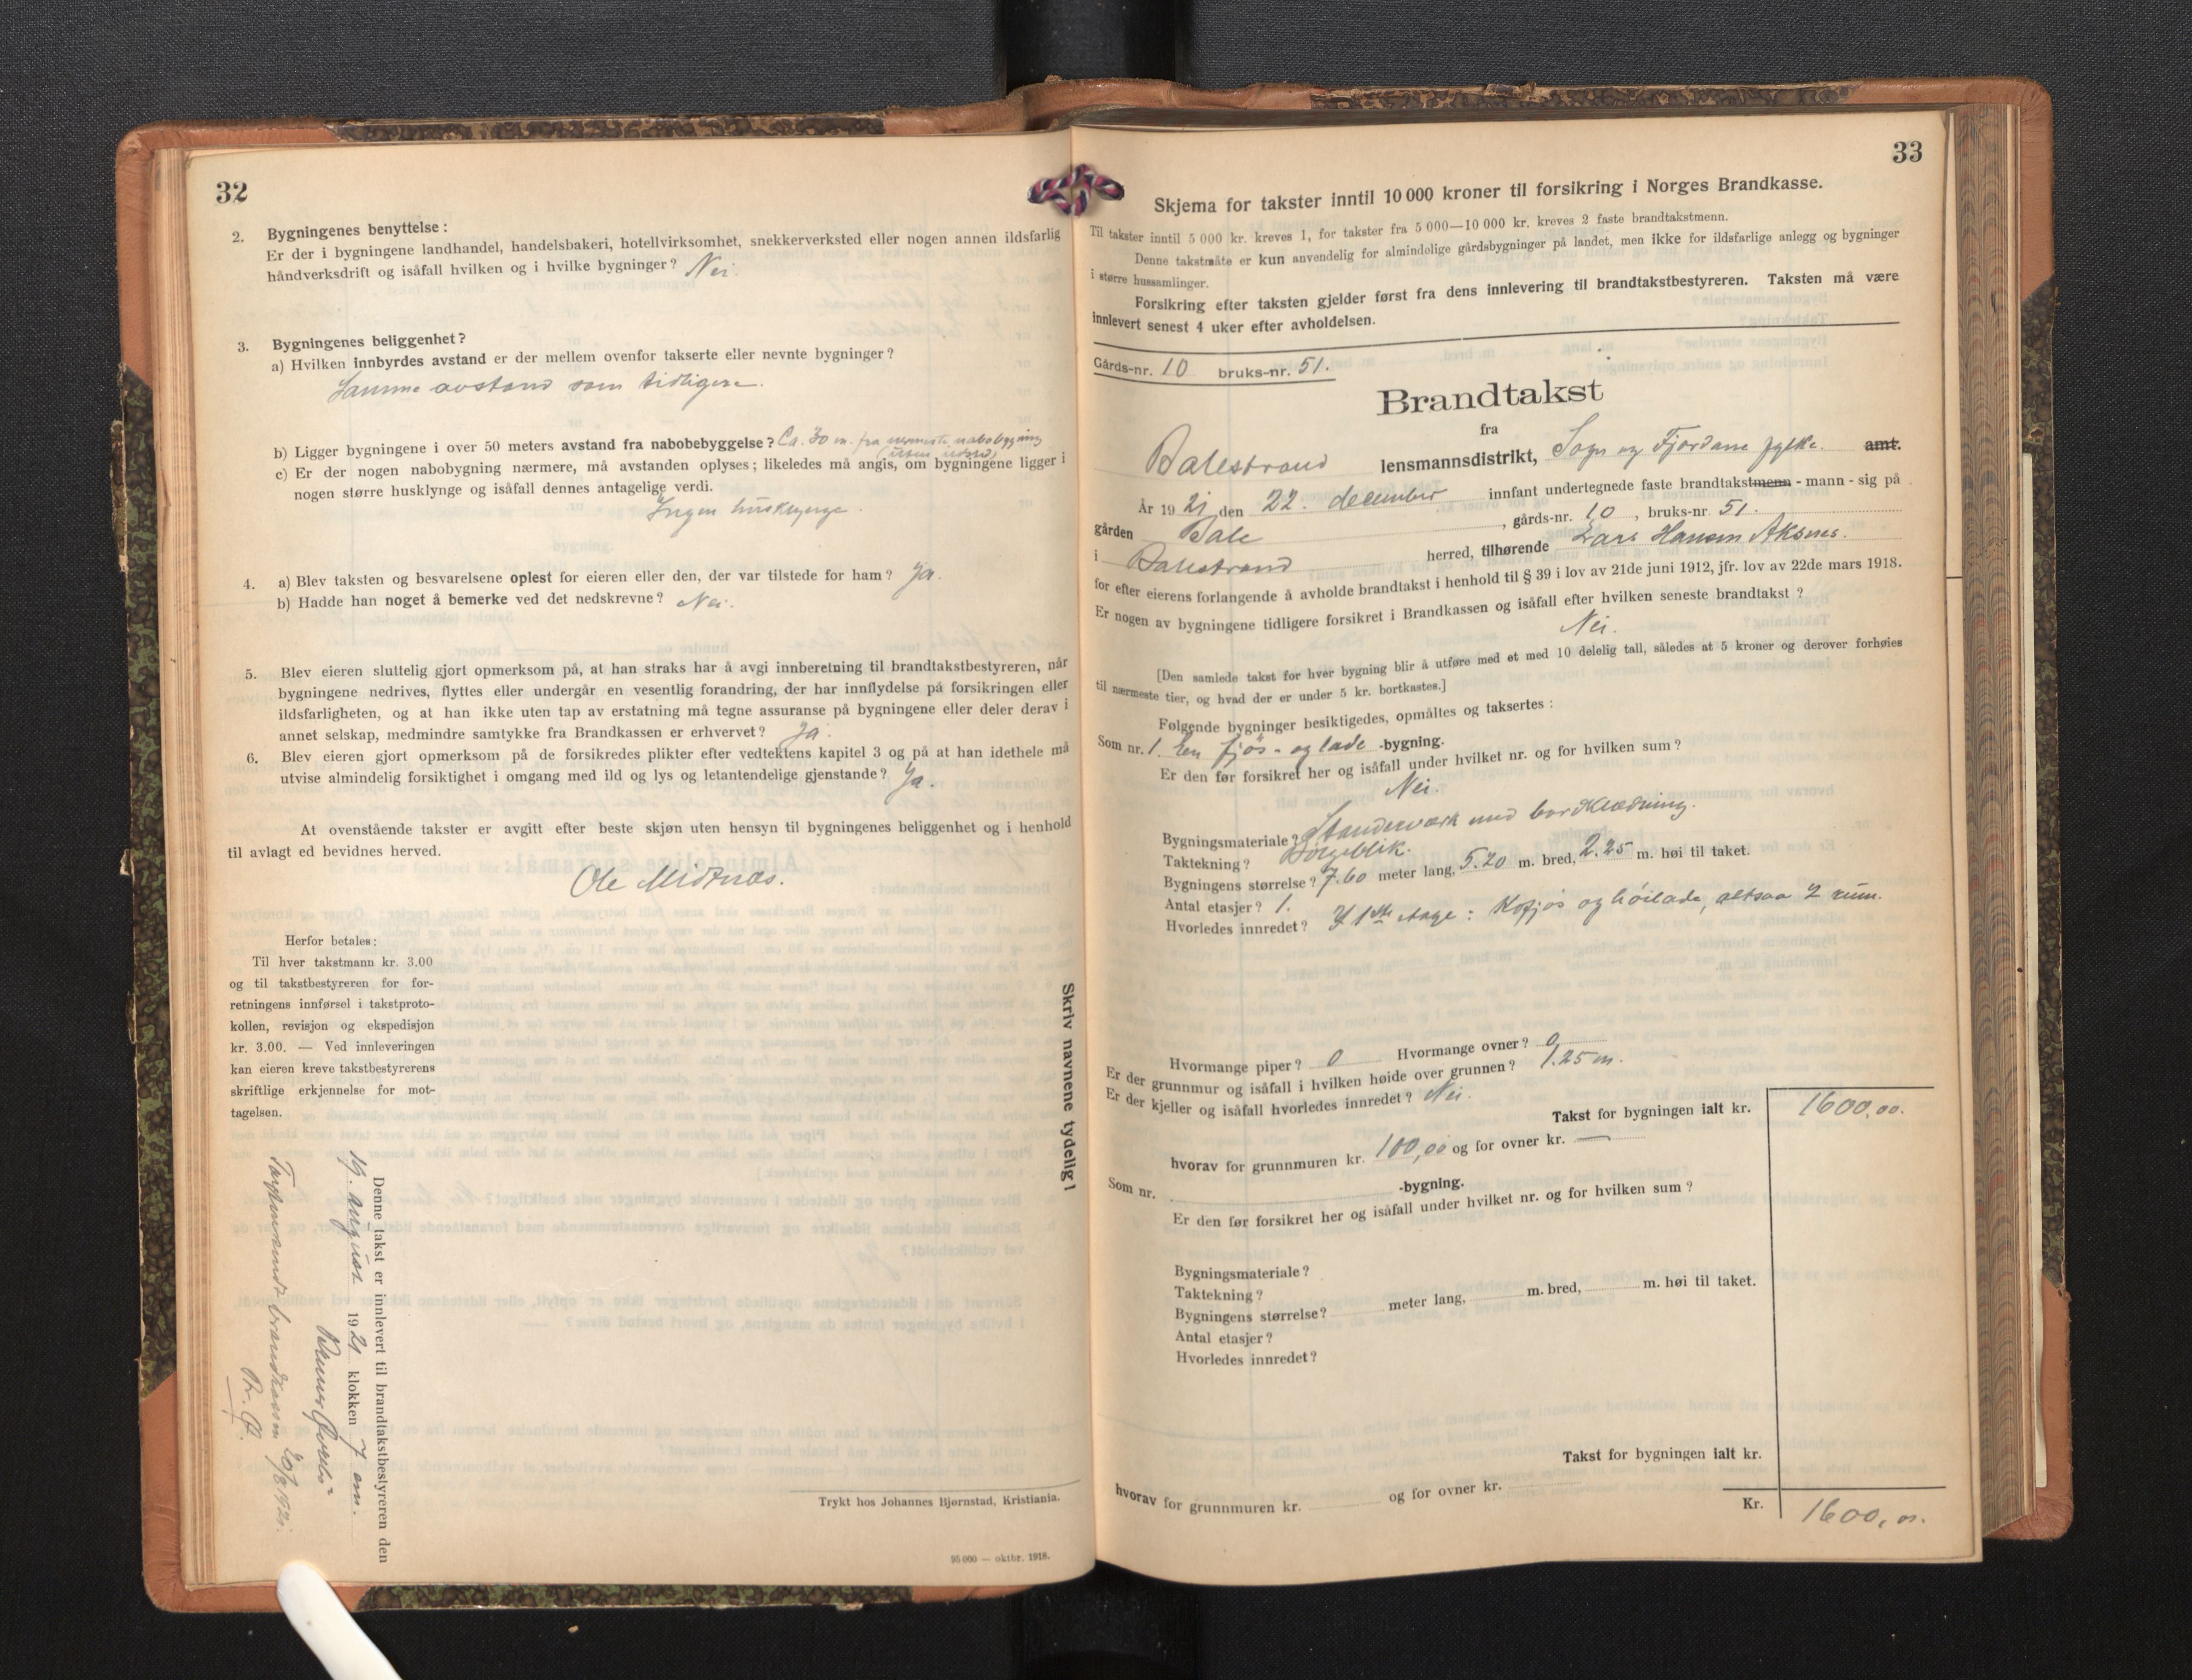 32
2. Bygningenes benyttelse:
Er der i bygningene landhandel, handelsbakeri, hotellvirksomhet, snekkerverksted eller nogen annen ildsfarlig
håndverksdrift og isåfall hvilken og i hvilke bygninger? Nei.
3. Bygningenes beliggenhet?
a) Hvilken innbyrdes avstand er der mellem ovenfor takserte eller nevnte bygninger?
Samme avstand som tidligere.
b) Ligger bygningene i over 50 meters avstand fra nabobebyggelse? Ca. 30 m. fra nærmeste nabobygning
c) Er der nogen nabobygning nærmere, må avstanden oplyses; likeledes må angis, om bygningene ligger i
nogen større husklynge og isåfall dennes antagelige verdi.
Ingen husklynge.
4. a) Blev taksten og besvarelsene oplest for eieren eller den, der var tilstede for ham? Ja.
b) Hadde han noget å bemerke ved det nedskrevne? Nei.
5. Blev eieren sluttelig gjort opmerksom på, at han straks har å avgi innberetning til brandtakstbestyreren, når
bygningene nedrives, flyttes eller undergår en vesentlig forandring, der har innflydelse på forsikringen eller
ildsfarligheten, og at han ikke uten tap av erstatning må tegne assuranse på bygningene eller deler derav i
annet selskap, medmindre samtykke fra Brandkassen er erhvervet? Ja.
6. Blev eieren gjort opmerksom på de forsikredes plikter efter vedtektens kapitel 3 og på at han idethele må
utvise almindelig forsiktighet i omgang med ild og lys og letantendelige gjenstande? Ja.
At ovenstående takster er avgitt efter beste skjøn uten hensyn til bygningenes beliggenhet og i henhold
til avlagt ed bevidnes herved.
Ole Midtnæs.
Herfor betales:
Til hver takstmann kr. 3.00
og til takstbestyreren for for-
retningens innførsel i takstproto-
kollen, revisjon og ekspedisjon
kr. 3.00. — Ved innleveringen
kan eieren kreve takstbestyrerens
skriftlige erkjennelse for mot-
tagelsen.
Skriv navnene tydelig!
Denne takst er innlevert til brandtakstbestyreren den
19. august 1921 klokken 7 em.
brandkassen 20/8 1921.
Trykt hos Johannes Bjørnstad, Kristiania.
95 000 — oktbr. 1918.
33
Skjema for takster inntil 10 000 kroner til forsikring i Norges Brandkasse.
Til takster inntil 5 000 kr. kreves 1, for takster fra 5 000—10 000 kr. kreves 2 faste brandtakstmenn.
Denne takstmåte er kun anvendelig for almindelige gårdsbygninger på landet, men ikke for ildsfarlige anlegg og bygninger
i større hussamlinger.
Forsikring efter taksten gjelder først fra dens innlevering til brandtakstbestyreren. Taksten må være
innlevert senest 4 uker efter avholdelsen.
Gårds-nr. 10 bruks-nr. 51.
Brandtakst
fra
Balestrand lensmannsdistrikt, Sogn og Fjordane fylke. amt.
År 1921 den 22. december innfant undertegnede faste brandtakstmenn - mann - sig på
gården Bale, gårds-nr. 10, bruks-nr. 51.
i Balestrand herred, tilhørende Lars Hansen Aksnes.
for efter eierens forlangende å avholde brandtakst i henhold til § 39 i lov av 21de juni 1912, jfr. lov av 22de mars 1918.
Er nogen av bygningene tidligere forsikret i Brandkassen og isåfall efter hvilken seneste brandtakst?
Nei.
[Den samlede takst for hver bygning blir å utføre med et med 10 delelig tall, således at 5 kroner og derover forhøies
til nærmeste tier, og hvad der er under 5 kr. bortkastes.]
Følgende bygninger besiktigedes, opmåltes og taksertes:
Som nr. 1. En fjøs- og lade -bygning.
Er den før forsikret her og isåfall under hvilket nr. og for hvilken sum?
Nei.
Bygningsmateriale? Standerværk med bordklædning.
Taktekning? Bølgeblik.
Bygningens størrelse? 7.60 meter lang, 5.20 m. bred, 2.25 m. høi til taket.
Antal etasjer? 1.
Hvorledes innredet? I 1ste etage: Kofjøs og høilade, altsaa 2 rum.
Hvormange piper? 0 Hvormange ovner? 0
Er der grunnmur og isåfall i hvilken høide over grunnen? 1.25 m.
Er der kjeller og isåfall hvorledes innredet? Nei.
Takst for bygningen ialt kr. 1600,00.
hvorav for grunnmuren kr. 100,00 og for ovner kr. —
Som nr. -bygning.
Er den før forsikret her og isåfall under hvilket nr. og for hvilken sum?
Bygningsmateriale?
Taktekning?
Bygningens størrelse? meter lang, m. bred, m. høi til taket.
Antal etasjer?
Hvorledes innredet?
Takst for bygningen ialt kr.
hvorav for grunnmuren kr. og for ovner kr.
Kr. 1600,00.